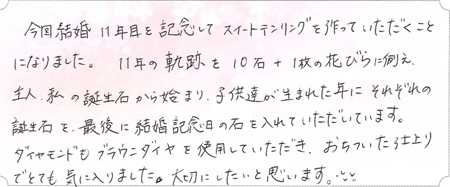 今回結婚11年目を記念してスイートテンリングを作っていただくこと
になりました。11年の軌跡を10石+1枚の花びらに例え、
主人、私の誕生石から始まり、子供達が生まれた年にそれぞれの
誕生石を、最後に結婚記念日の石を入れていただいています。
ダイヤモンドもブラウンダイヤを使用していただき、おちついた仕上り
でとても気に入りました。大切にしたいと思います。